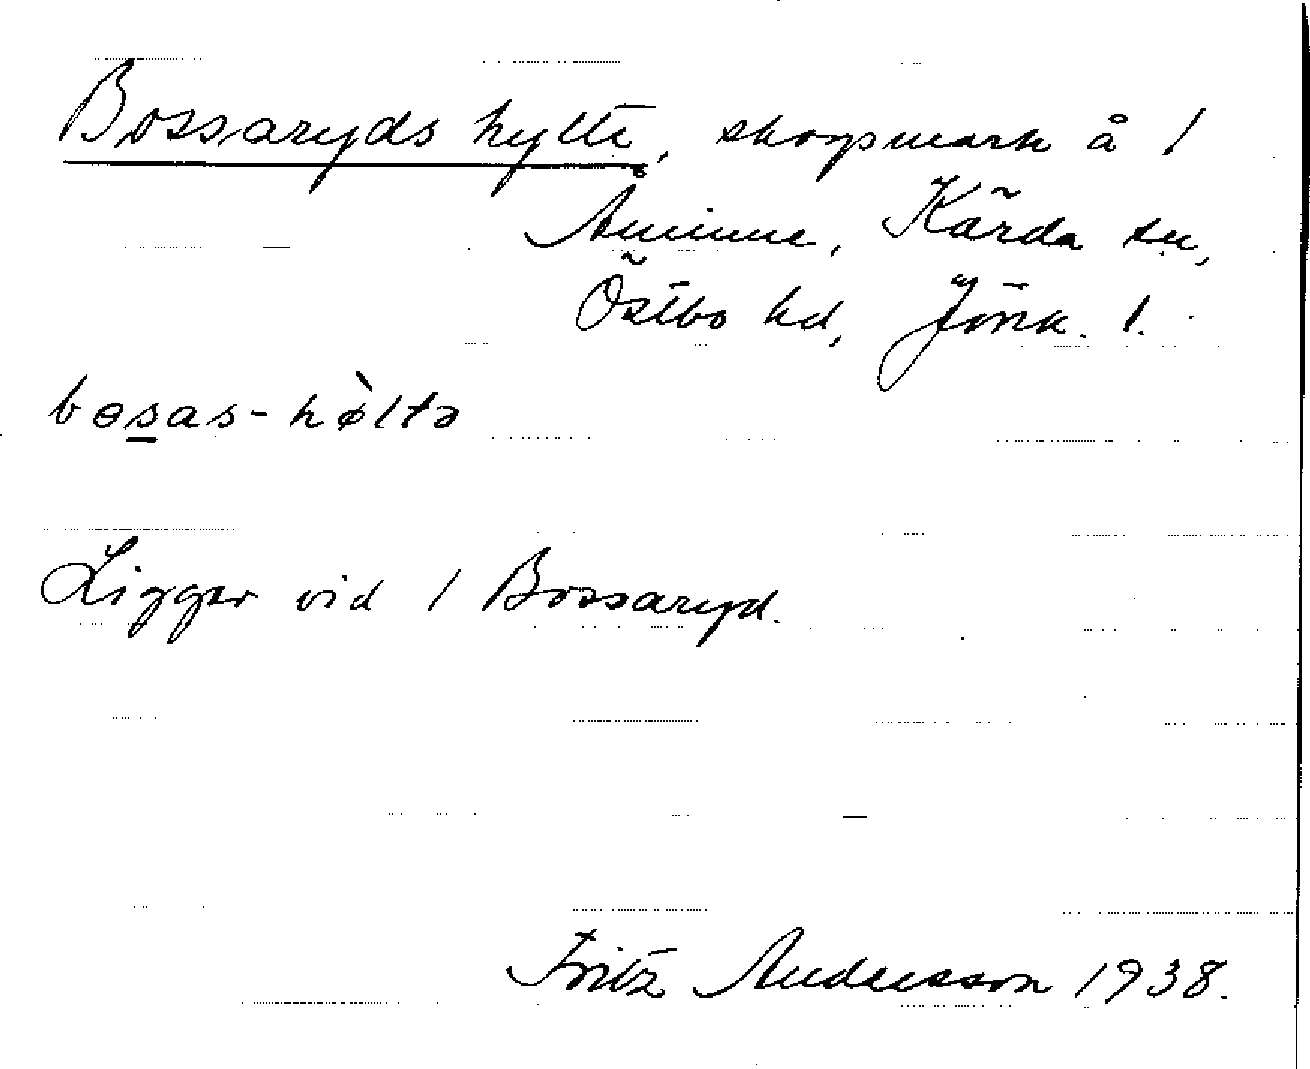 Bossaryds hylte, skogsmark å 1
Åminne, Kärda sn,
Östbo hd, Jönk. l.
bosas-hø̀ltə
Ligger vid 1 Bossaryd.
Fritz Andersson 1938.